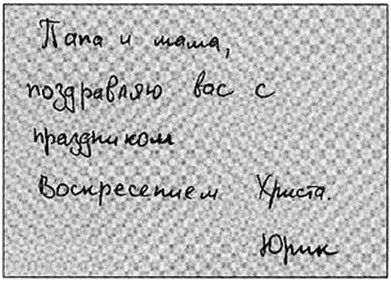 Папа и мама,
поздравляю вас с
праздником
Воскресением Христа.
Юрик